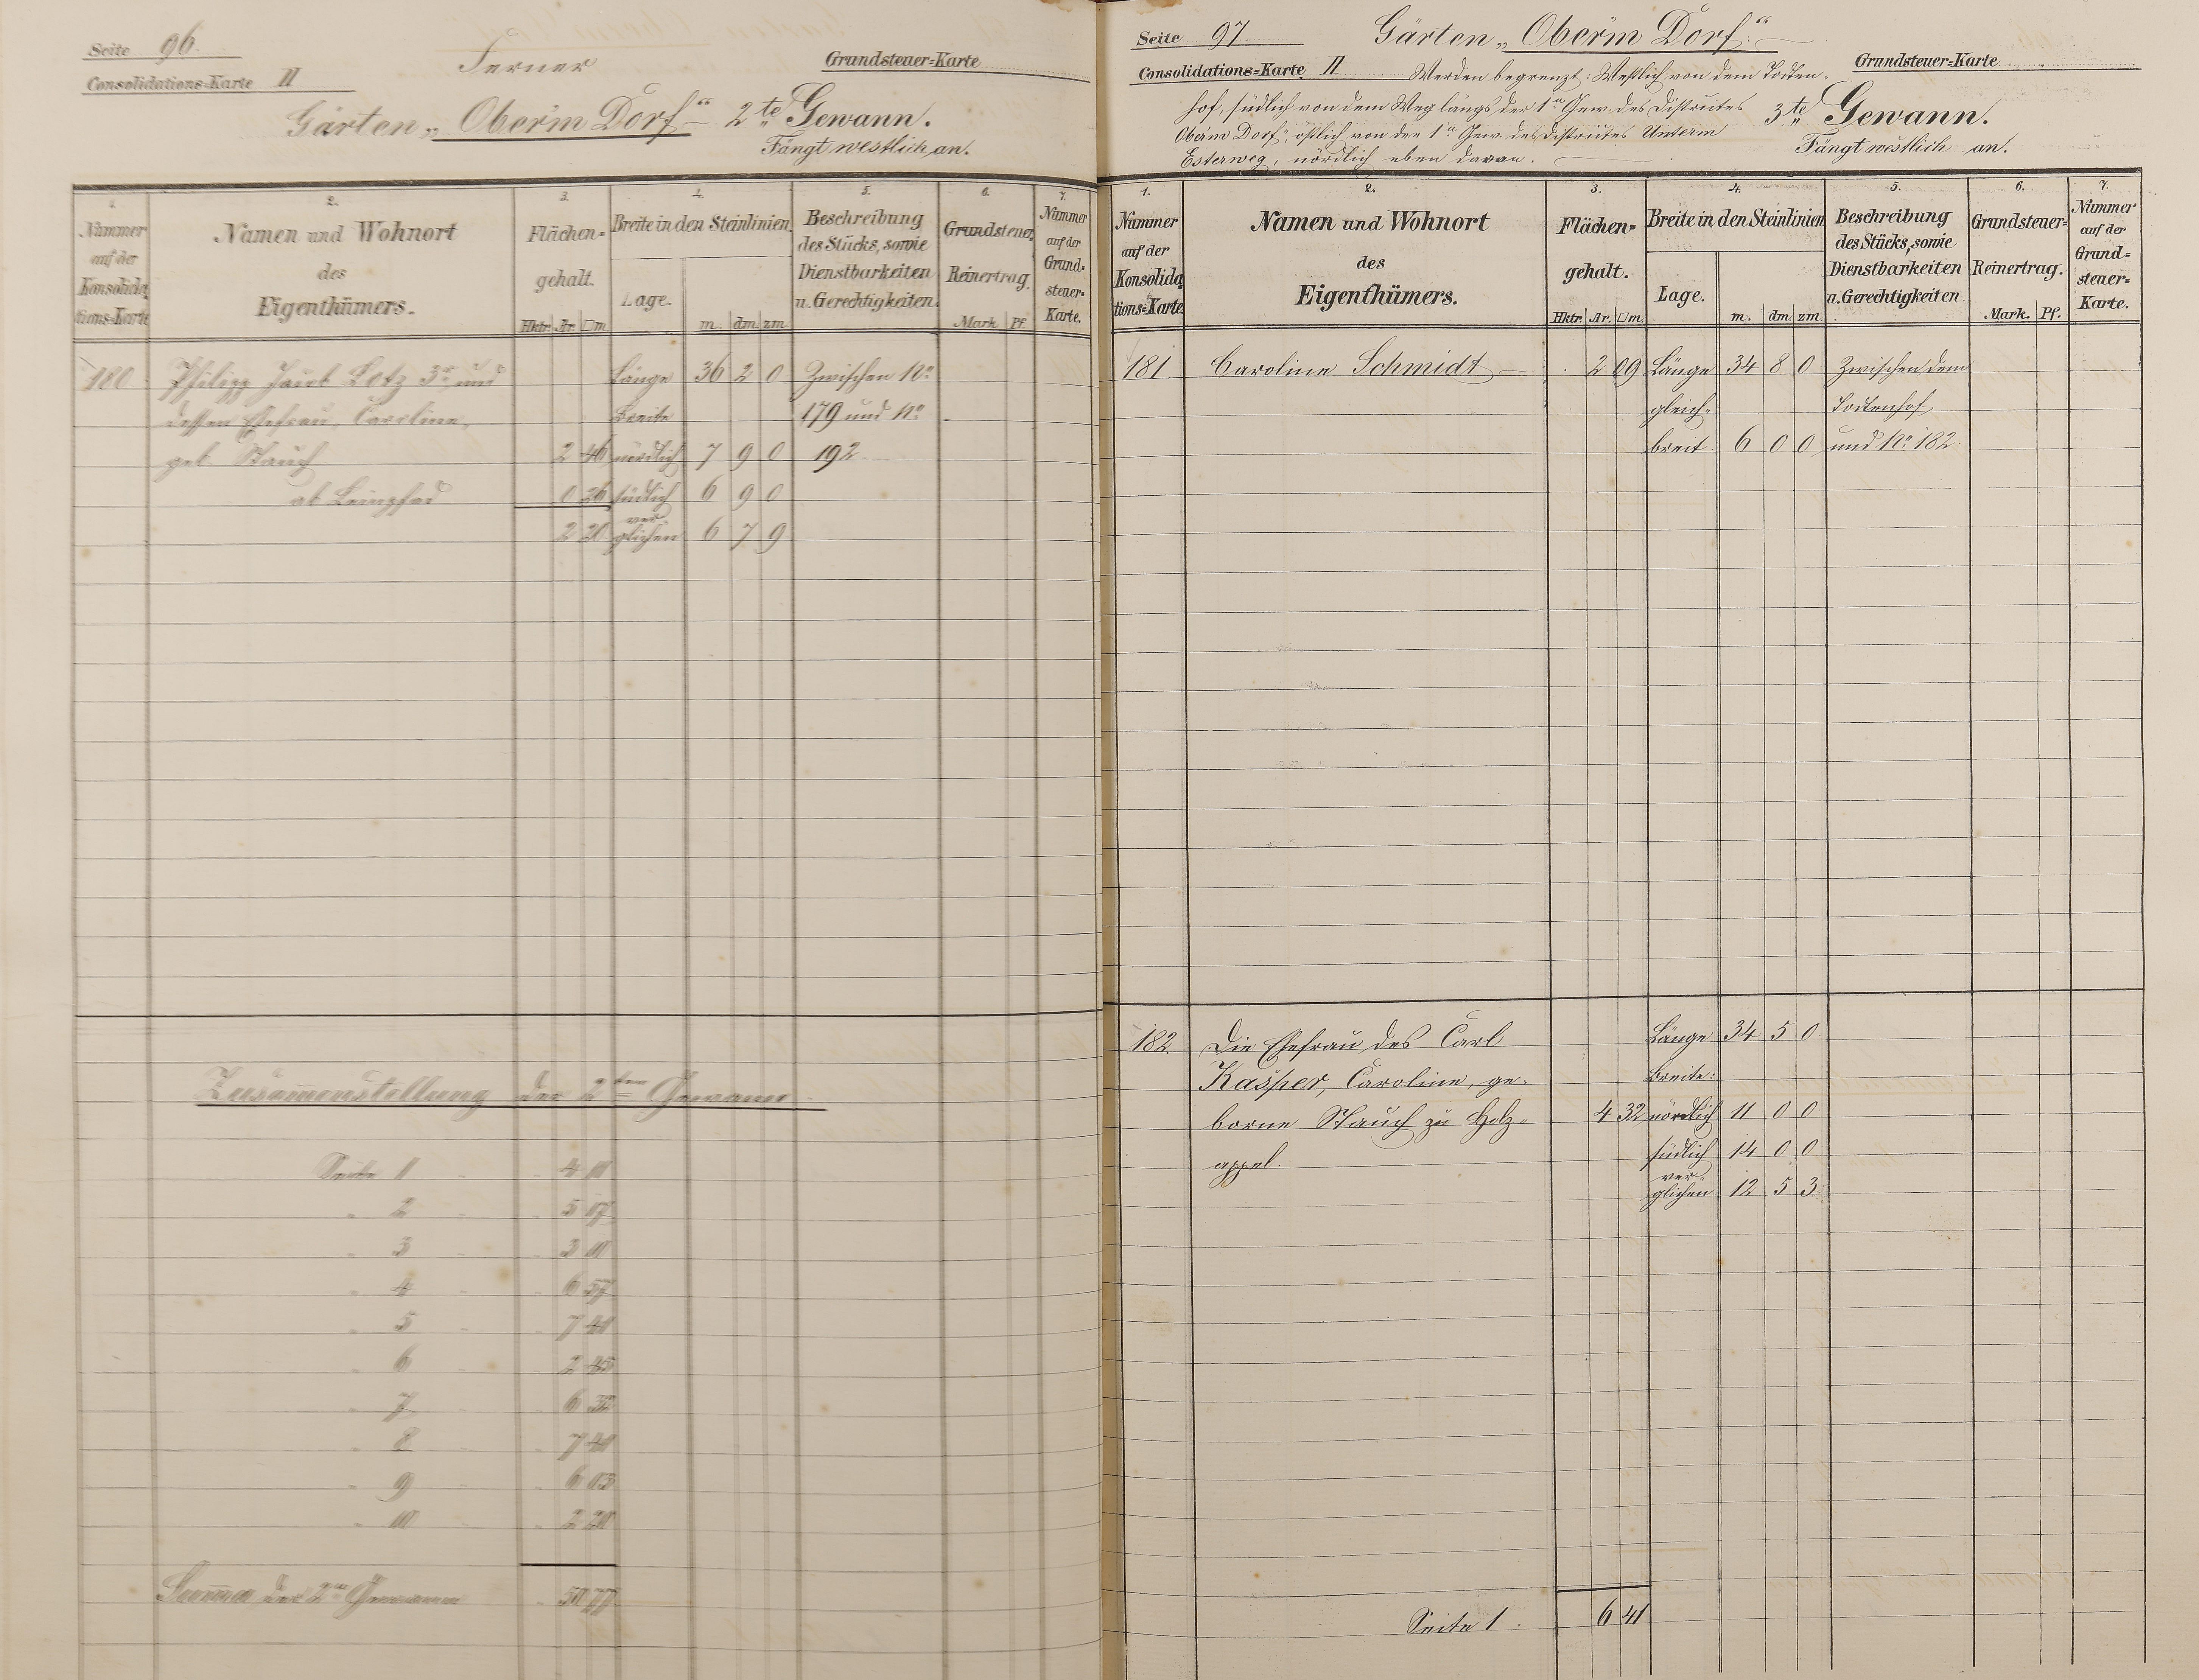 Seite 96.
Consolidations=Karte II
Ferner
Grundsteuer=Karte
Gärten „Oberm Dorf“ 2te Gewann.
Fängt westlich an.
1.
2.
3.
4.
5.
6.
7.
Nummer auf der Konsolidations=Karte
Namen und Wohnort des Eigenthümers.
Flächen=gehalt.
Hktr. Ar. □m
Breite in den Steinlinien.
Lage.
m. dm zm
Beschreibung des Stücks, sowie Dienstbarkeiten u. Gerechtigkeiten.
Grundsteuer Reinertrag.
Mark Pf.
Nummer auf der Grund=steuer=Karte.
180 Philipp Jacob Lotz 3r und Länge 36 2 0 Zwischen No
dessen Ehefrau, Caroline, Breite 179 und No
geb Stauch 2 46 nördlich 7 9 0 192
ab Leinpfad 0 26 südlich 6 9 0
2 20 verglichen 6 7 9
Zusammenstellung der 2ten Gewann
Seite 1 4 01
" 2
" 3
" 4 6 57
" 5 7 41
" 6 2 45
" 7
" 8 7 41
" 9 6 03
" 10 2 20
Summa der 2ten Gewann 50 77
Seite 97
Gärten „Oberm Dorf“
Consolidations=Karte II
Grundsteuer=Karte
Werden begrenzt: Westlich von dem Todten=
hof, südlich von dem Weg längs der 1n Gew. des Distriktes
Oberm Dorf“, östlich von der 1n Gew. des Distriktes Unterm
Esterweg, nördlich eben davon.
3te Gewann.
Fängt westlich an.
1.
2.
3.
4.
5.
6.
7.
Nummer auf der Konsolidations=Karte
Namen und Wohnort des Eigenthümers.
Flächen=gehalt.
Hktr. Ar. □m.
Breite in den Steinlinien
Lage.
m. dm zm
Beschreibung des Stücks, sowie Dienstbarkeiten u. Gerechtigkeiten.
Grundsteuer=Reinertrag.
Mark. Pf.
Nummer auf der Grund=steuer=Karte.
181 Caroline Schmidt 2 09 Länge 34 8 0 Zwischen dem
gleich= Todtenhof
breit 6 0 0 und No 182.
182. Die Ehefrau des Carl Länge 34 5 0
Kasper, Caroline, ge= Breite:
borne Stauch zu Holz= 4 32 nördlich 11 0 0
appel. südlich 14 0 0
verglichen 12 5 3
Seite 1. 6 41